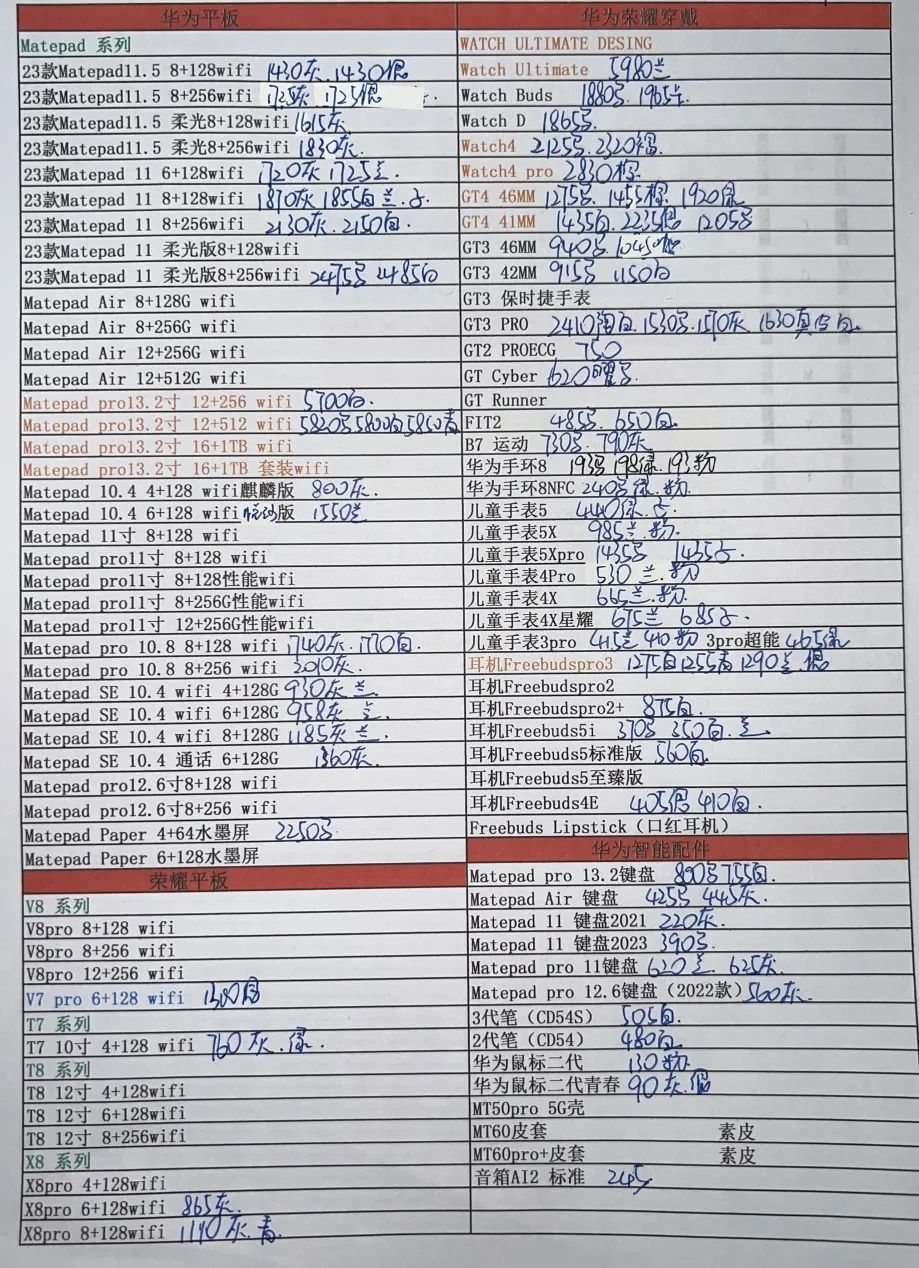 华为平板
Matepad 系列
23款Matepad11.5 8+128wifi 1430灰.1430银
23款Matepad11.5 8+256wifi 1725灰 1725银
23款Matepad11.5 柔光8+128wifi 1615灰
23款Matepad11.5 柔光8+256wifi 1830灰.
23款Matepad 11 6+128wifi 1720灰 1725兰.
23款Matepad 11 8+128wifi 1870灰 1855白 兰.
23款Matepad 11 8+256wifi 2130灰.2150白
23款Matepad 11 柔光版8+128wifi
23款Matepad 11 柔光版8+256wifi 2475 2485白
Matepad Air 8+128G wifi
Matepad Air 8+256G wifi
Matepad Air 12+256G wifi
Matepad Air 12+512G wifi
Matepad pro13.2寸 12+256 wifi 5700白.
Matepad pro13.2寸 12+512 wifi 5820 5800白 5850青
Matepad pro13.2寸 16+1TB wifi
Matepad pro13.2寸 16+1TB 套装wifi
Matepad 10.4 4+128 wifi麒麟版 800灰.
Matepad 10.4 6+128 wifi 版 1550兰
Matepad 11寸 8+128 wifi
Matepad pro11寸 8+128 wifi
Matepad pro11寸 8+128性能wifi
Matepad pro11寸 8+256G性能wifi
Matepad pro11寸 12+256G性能wifi
Matepad pro 10.8 8+128 wifi 1740灰.1770白.
Matepad pro 10.8 8+256 wifi 2010灰.
Matepad SE 10.4 wifi 4+128G 930灰 兰.
Matepad SE 10.4 wifi 6+128G 958灰 兰.
Matepad SE 10.4 wifi 8+128G 1185灰 兰.
Matepad SE 10.4 通话 6+128G 1360灰.
Matepad pro12.6寸8+128 wifi
Matepad pro12.6寸8+256 wifi
Matepad Paper 4+64水墨屏 2250
Matepad Paper 6+128水墨屏
荣耀平板
V8 系列
V8pro 8+128 wifi
V8pro 8+256 wifi
V8pro 12+256 wifi
V7 pro 6+128 wifi 1300
T7 系列
T7 10寸 4+128 wifi 760灰.绿.
T8 系列
T8 12寸 4+128wifi
T8 12寸 6+128wifi
T8 12寸 8+256wifi
X8 系列
X8pro 4+128wifi
X8pro 6+128wifi 865灰.
X8pro 8+128wifi 1140灰.青.
华为荣耀穿戴
WATCH ULTIMATE DESING
Watch Ultimate 5980兰
Watch Buds 1880 1965
Watch D 1865
Watch4 2125 2320
Watch4 pro 2830棕
GT4 46MM 1275 1455棕. 1920绿
GT4 41MM 1435白. 2235银 1205
GT3 46MM 940 1045
GT3 42MM 915 1150白
GT3 保时捷手表
GT3 PRO 2410陶白.1530 1570灰 1630真皮白.
GT2 PROECG 750
GT Cyber 620曜
GT Runner
FIT2 485 650白.
B7 运动 730 790灰
华为手环8 193 198绿.193粉
华为手环8NFC 240 绿.粉.
儿童手表5 440绿.
儿童手表5X 985兰.粉.
儿童手表5Xpro 1435 1435
儿童手表4Pro 530兰.粉
儿童手表4X 665兰.粉.
儿童手表4X星耀 675兰 685
儿童手表3pro 415兰 410粉 3pro超能 465绿
耳机Freebudspro3 1275白1255青1290兰.银
耳机Freebudspro2
耳机Freebudspro2+ 875白.
耳机Freebuds5i 370 350白.兰.
耳机Freebuds5标准版 560白
耳机Freebuds5至臻版
耳机Freebuds4E 405银 410白.
Freebuds Lipstick（口红耳机）
华为智能配件
Matepad pro 13.2键盘 800 755白.
Matepad Air 键盘 425 445灰.
Matepad 11 键盘2021 220灰.
Matepad 11 键盘2023 390
Matepad pro 11键盘 620兰. 625灰.
Matepad pro 12.6键盘（2022款）560灰.
3代笔（CD54S） 505白.
2代笔（CD54） 480白.
华为鼠标二代 130粉.
华为鼠标二代青春 90灰.银
MT50pro 5G壳
MT60皮套 素皮
MT60pro+皮套 素皮
音箱AI2 标准 245